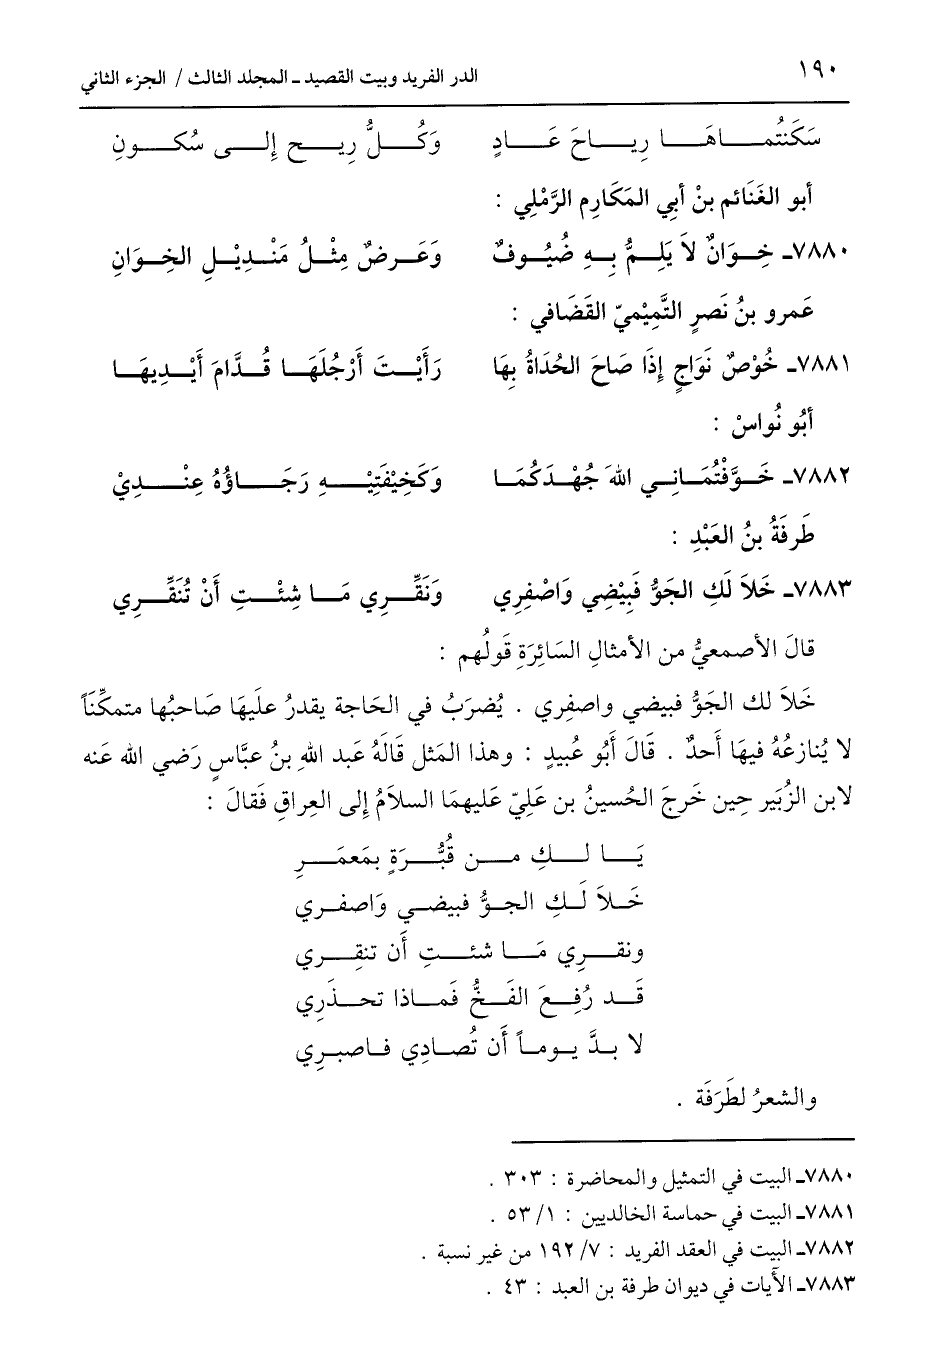 ١٩٠ الدر الفريد وبيت القصيد ـ المجلد الثالث / الجزء الثاني
سَكَنتُمـاهَـا رِيـاحَ عَـادٍ وَكُـلُّ رِيـحٍ إِلـى سُكـونِ
أبو الغَنَائم بنْ أبي المَكَارِم الرَّمْلِي :
٧٨٨٠ـ خِـوَانٌ لاَ يَلِـمُّ بِـهِ ضُيُـوفٌ وَعَـرضٌ مِثْـلُ مَنْـديْـلِ الخِـوَانِ
عَمرو بنُ نَصرٍ التَّمِيْميّ القَضَافي :
٧٨٨١ـ خُوْصٌ نَوَاجٍ إِذَا صَاحَ الحُدَاةُ بِهَا رَأَيْـتَ أَرْجُلَهَـا قُـدَّامَ أَيْـدِيهَـا
أبُو نُواسْ :
٧٨٨٢ـ خَـوَّفْتُمَـانِـي اللهَ جُهْـدَكُمَـا وَكَخِيْفَتِيْـهِ رَجَـاؤُهُ عِنْـدِيْ
طَرفَةُ بنُ العَبْدِ :
٧٨٨٣ـ خَلاَ لَكِ الجَوُّ فَبِيْضِي وَاصْفِرِي وَنَقِّـرِي مَـا شِئْـتِ أَنْ تُنَقِّـرِي
قالَ الأصمعيُّ من الأمثالِ السَائِرَةِ قَولُهم :
خَلاَ لك الجَوُّ فبيضي واصفِري . يُضرَبُ في الحَاجة يقدرُ علَيهَا صَاحبُها متمكّنَاً
لا يُنازعُهُ فيهَا أَحدٌ . قَالَ أَبُو عُبيدٍ : وهذا المَثل قَالَهُ عَبد اللهِ بنُ عبَّاسٍ رَضي الله عَنه
لابن الزُبَير حِين خَرجَ الحُسينُ بن عَليّ عَليهمَا السلاَمُ إلى العِراقِ فَقالَ :
يَـا لـكِ مـن قُبُّـرَةٍ بمَعمَـرِ
خَـلاَ لَـكِ الجـوُّ فبيضـي وَاصفـري
ونقـرِي مَـا شئـتِ أَن تنقِـري
قَـد رُفِـعَ الفَـخُّ فَمـاذا تحـذَرِي
لا بـدَّ يـومـاً أَن تُصَـادِي فـاصبـرِي
والشعرُ لطَرَفَة .
٧٨٨٠ـ البيت في التمثيل والمحاضرة : ٣٠٣ .
٧٨٨١ـ البيت في حماسة الخالديين : ١/ ٥٣ .
٧٨٨٢ـ البيت في العقد الفريد : ٧/ ١٩٢ من غير نسبة .
٧٨٨٣ـ الأيات في ديوان طرفة بن العبد : ٤٣ .